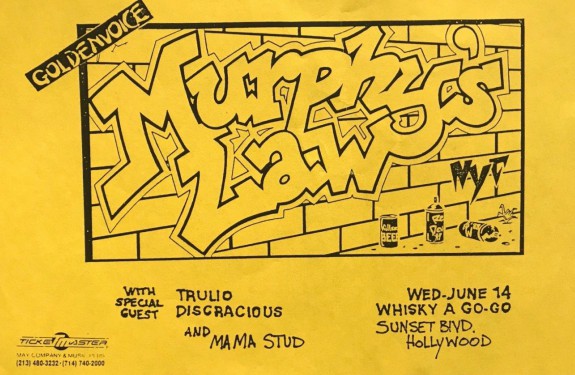 GOLDENVOICE
Murphy's
Law
NYC
BEER
WITH
SPECIAL
GUEST
TRULIO
DISGRACIOUS
AND
MAMA STUD
WED-JUNE 14
WHISKY A GO-GO
SUNSET BLVD.
HOLLYWOOD
TICKETMASTER
MAY COMPANY & MUSIC PLUS
(213) 480-3232 • (714) 740-2000